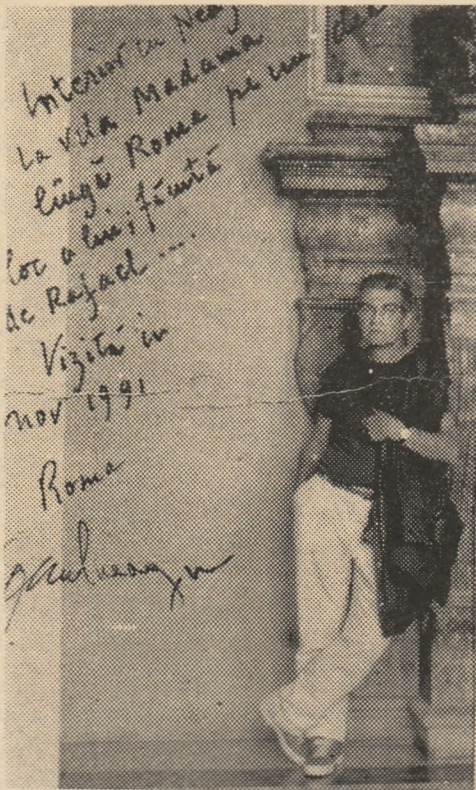 Interior cu
La vila Madama
lîngă Roma pe un
loc a lui, făcută
de Rafael ...
Vizită in
nov 1991
Roma